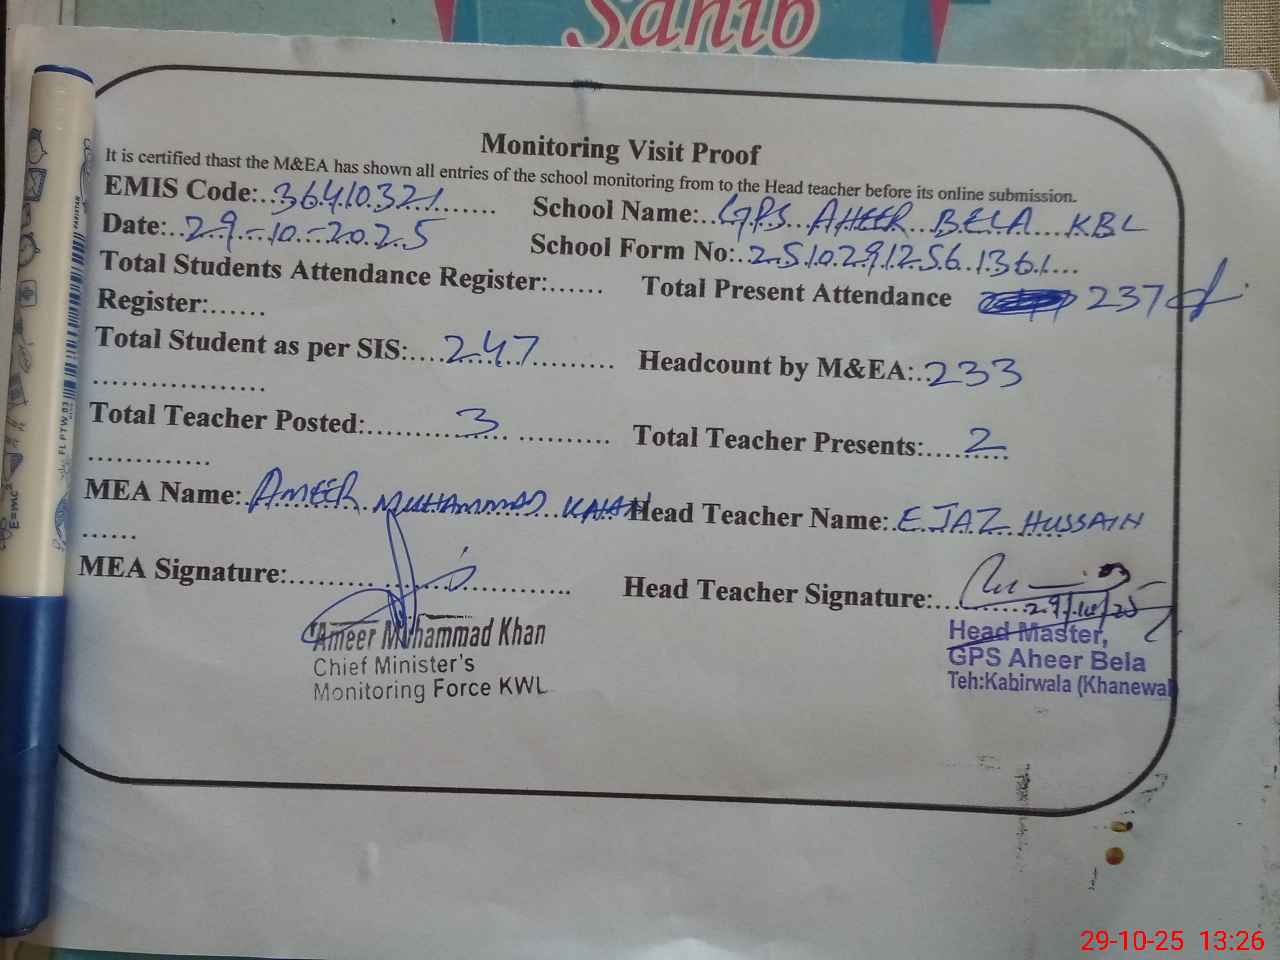 Sahib
Monitoring Visit Proof
It is certified thast the M&EA has shown all entries of the school monitoring from to the Head teacher before its online submission.
EMIS Code:..36410321....... School Name:..GPS AHEER BELA KBL
Date:..29-10-2025 School Form No:..25102912561361...
Total Students Attendance Register:...... Total Present Attendance 237
Register:.......
Total Student as per SIS:....247............ Headcount by M&EA:..233
..................
Total Teacher Posted:............3...... .......... Total Teacher Presents:....2....
.............
MEA Name:..AMEER MUHAMMAD KHAN Head Teacher Name:..EJAZ HUSSAIN
......
MEA Signature:......... ............. Head Teacher Signature:...
29/10/25
Ameer Muhammad Khan
Chief Minister's
Monitoring Force KWL
Head Master,
GPS Aheer Bela
Teh:Kabirwala (Khanewal
E=mc²
29-10-25 13:26